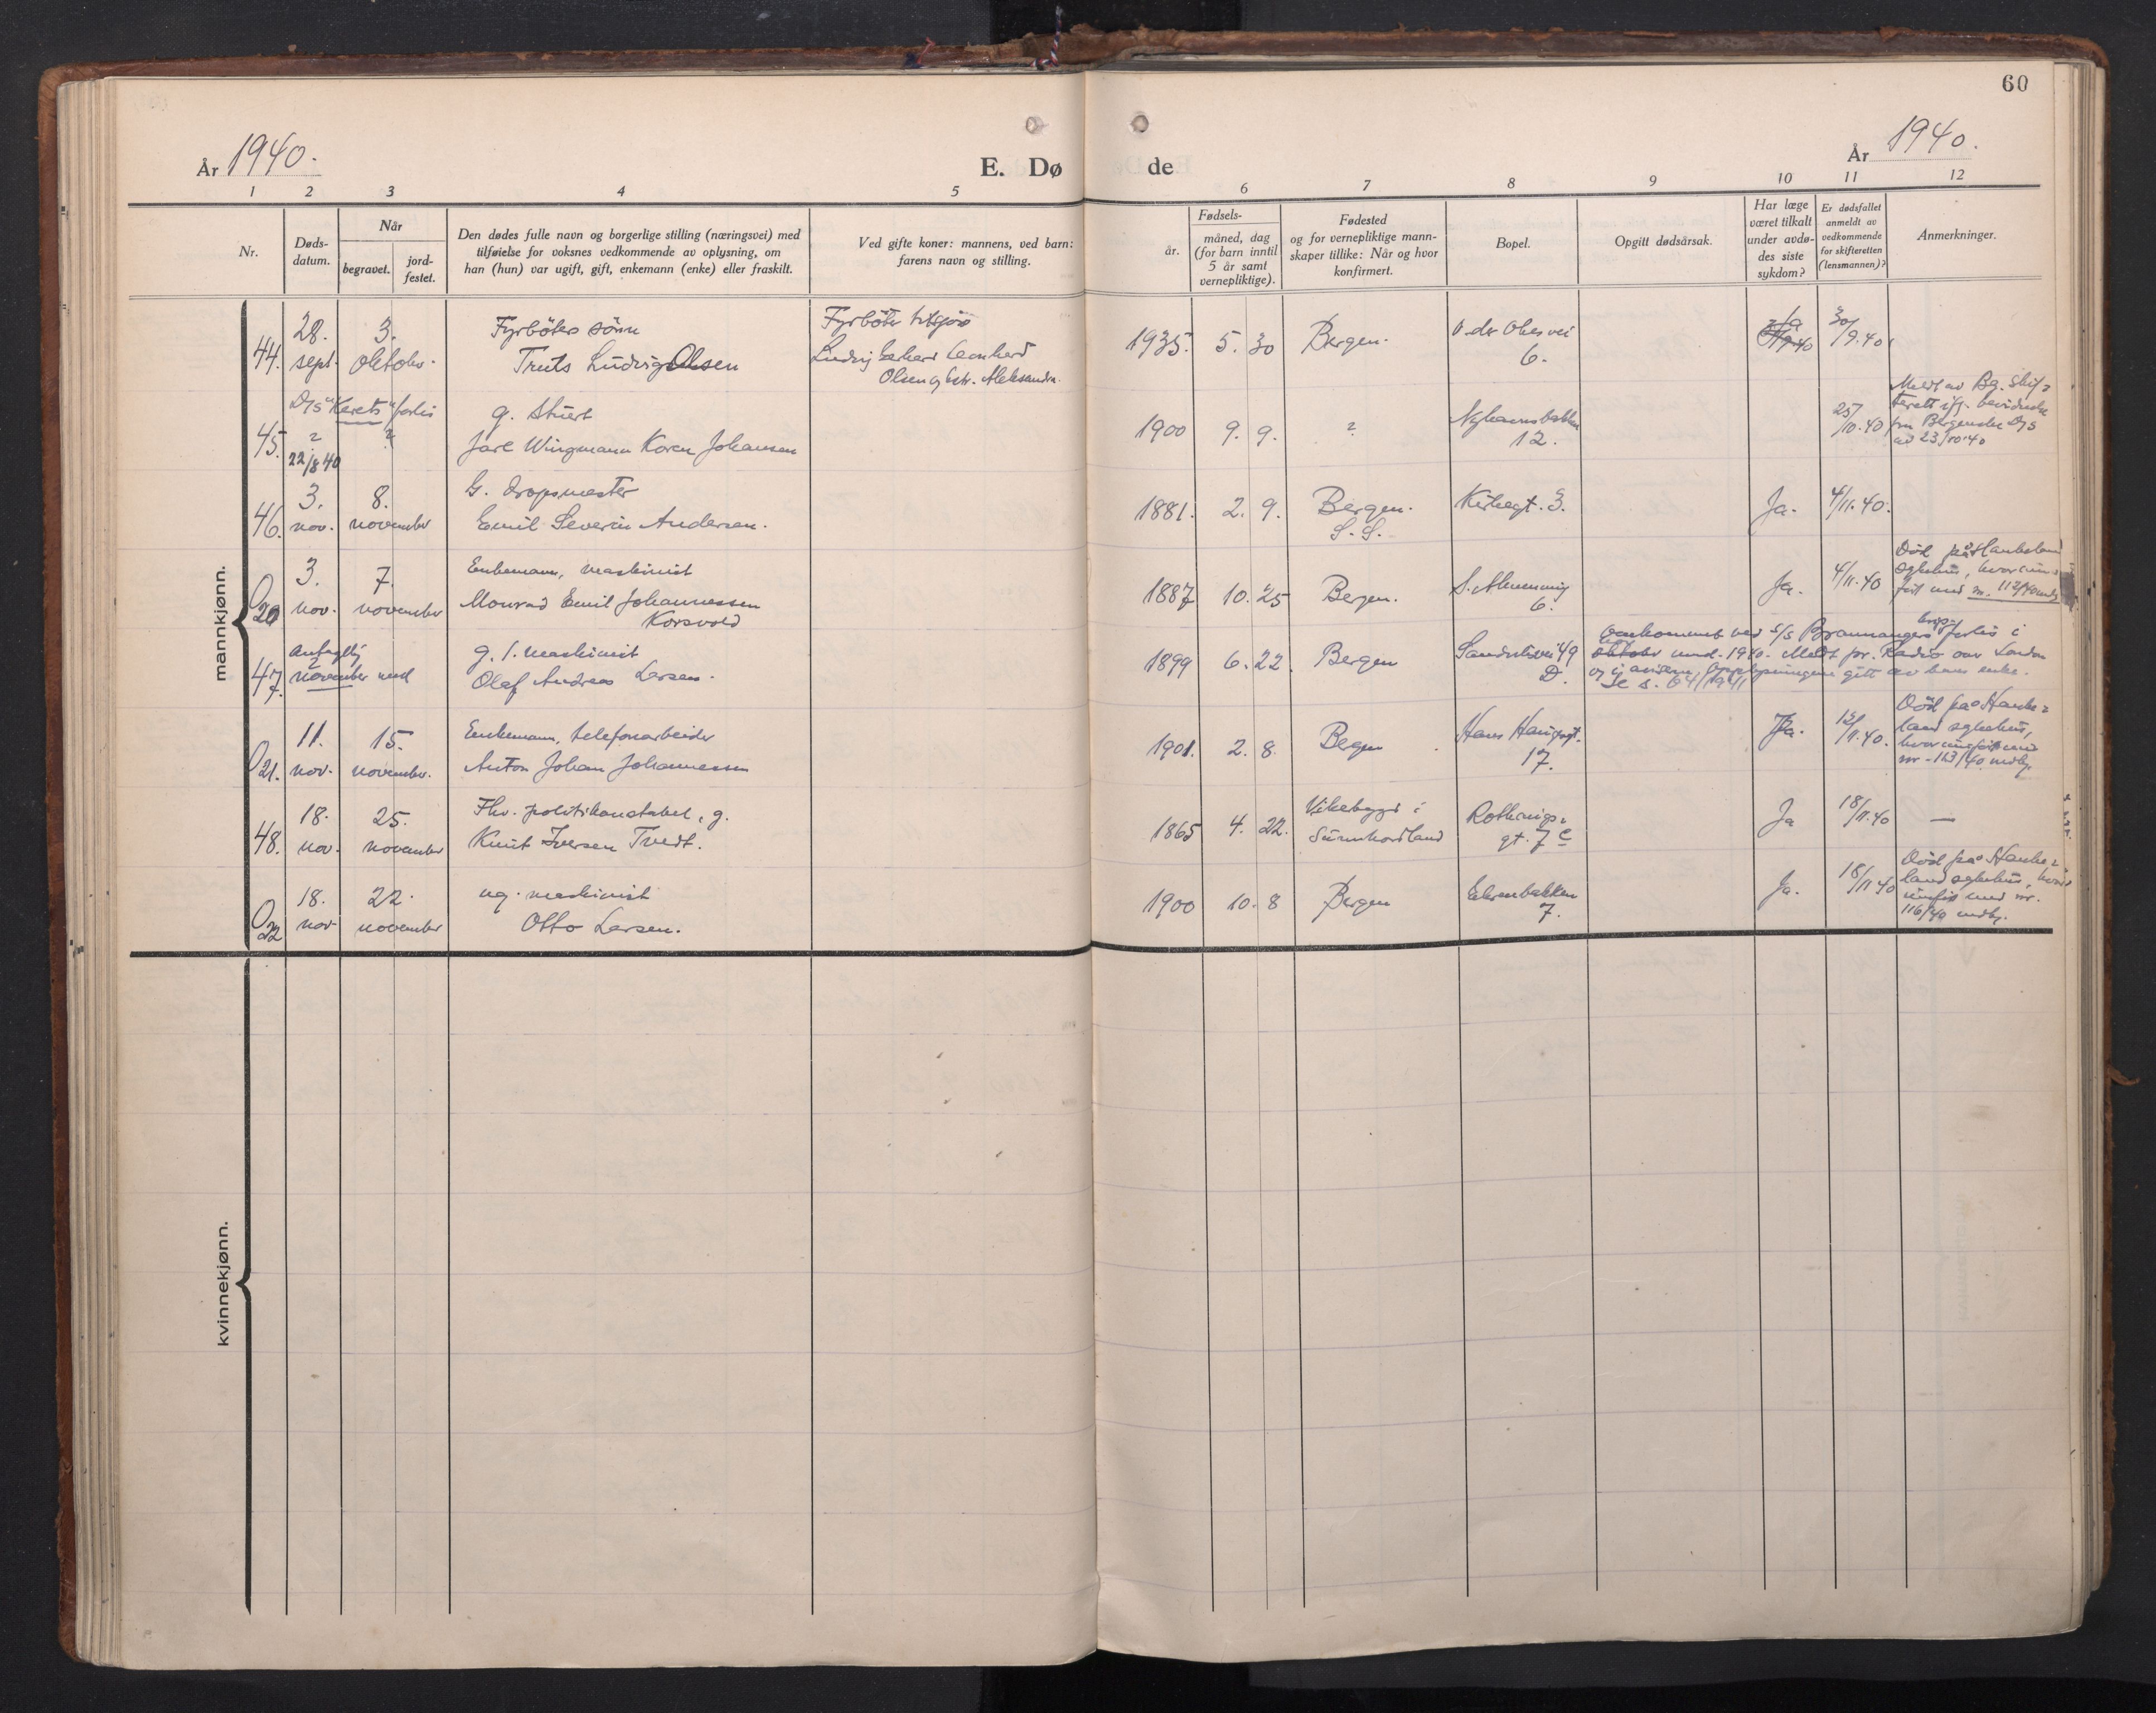 60
År 1940.
E. Dø de
År 1940.
1 2 3 4 5 6 7 8 9 10 11 12
Nr.
Døds-
datum.
Når
begravet.
jord-
festet.
Den dødes fulle navn og borgerlige stilling (næringsvei) med
tilføielse for voksnes vedkommende av oplysning, om
han (hun) var ugift, gift, enkemann (enke) eller fraskilt.
Ved gifte koner: mannens, ved barn:
farens navn og stilling.
Fødsels-
år.
måned, dag
(for barn inntil
5 år samt
vernepliktige).
Fødested
og for vernepliktige mann-
skaper tillike: Når og hvor
konfirmert.
Bopel.
Opgitt dødsårsak.
Har læge
været tilkalt
under avdø-
des siste
sykdom?
Er dødsfallet
anmeldt av
vedkommende
for skifteretten
(lensmannen)?
Anmerkninger.
mannkjønn.
44.
28.
sept.
3.
oktober.
Fyrbøters sønn
Truls Ludvig Olsen
Fyrbøter
Ludvig Gerhard Leonhard
Olsen og hstr. Aleksandra.
1935. 5. 30
Bergen.
6.
Ja
30/9.40
45.
D/S "Keret"s forlis
?
22/8 40
?
g. Stuert
Jarl Wingmann Koren Johansen
1900 9. 9.
?
Nyhavnsbakken
12.
25/10.40
Meldt av Bg. skif-
terett ifg. bevidnelse
fra Bergenske D/S
ad 23/10.40
46.
3.
nov.
8.
november
G. dropsmester
Emil Severin Andersen.
1881. 2. 9.
Bergen.
S. S.
Kirkegt. 3.
Ja.
4/11.40.
20
3.
nov.
7.
november
Enkemann, maskinist
Monrad Emil Johannessen
Korsvold
1887 10. 25
Bergen.
6.
Ja.
4/11.40
Død på Haukeland
sykehus, hvor inn-
ført med nr. 112/40
47.
Antagelig
?
november mnd
g. 1. maskinist
Olaf Andreas Larsen.
1899 6. 22.
Bergen
Sandviksvei 49
D.
Omkommet ved s/s Braunangers forlis i
oktober mnd. 1940. Meldt pr. Radio over London
og i avisen. Opplysningene gitt av hans enke.
Se s. 64/1941
21.
11.
nov.
15.
november.
Enkemann, telefonarbeider
Anton Johan Johannessen
1901. 2. 8.
Bergen
Hans Haugesgt.
17.
Ja.
12/11.40.
Død på Hauke-
land sykehus,
hvor innført med
nr. 113/40 mdby.
48.
18.
nov.
25.
november
Fhv. politikonstabel, g.
Knut Iversen Tvedt.
1865 4. 22.
Vikebygd i
Sunnhordland
Rothaugs-
gt. 7 c
Ja
18/11.40
—
22
18.
nov.
22.
november
ug. maskinist
Otto Larsen.
1900 10. 8
Bergen
Ekrenbakken
7.
Ja.
18/11 40
Død på Hauke-
land sykehus, hvor
innført med nr.
116/40 mdby.
kvinnekjønn.